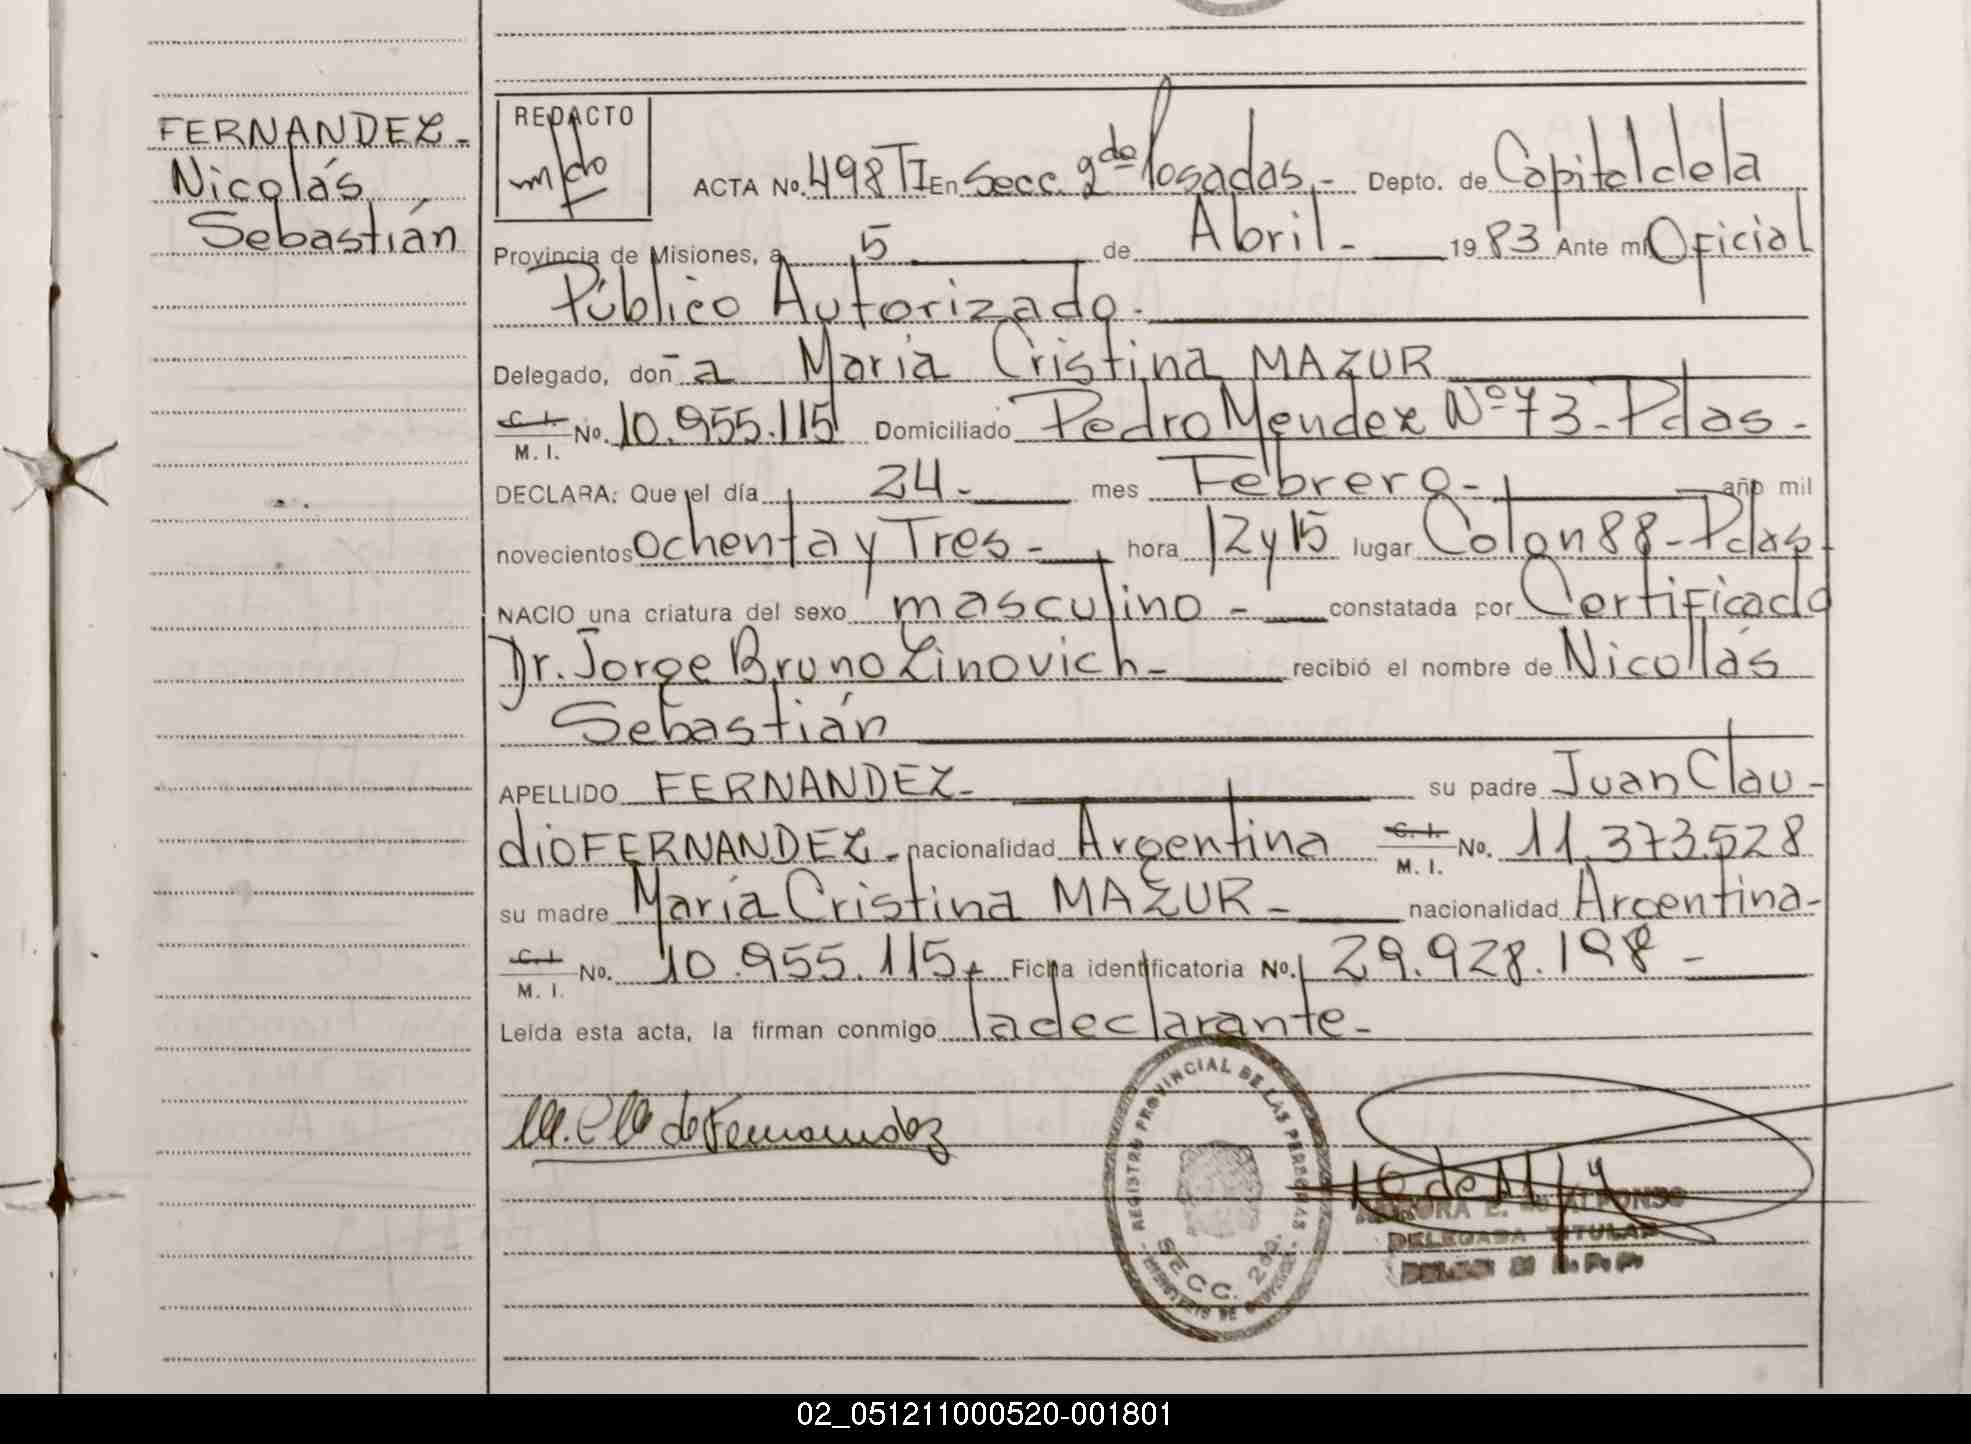 FERNANDEZ-
Nicolás
Sebastián
REDACTO
ACTA No. 498 TI En Secc. 2da Posadas,- Depto. de Capital de la
Provincia de Misiones, a 5 de Abril.- 1983 Ante mí Oficial
Público Autorizado.-
Delegado, don a María Cristina MAZUR
C. I.
M. I. No. 10.955.115 Domiciliado Pedro Mendez Nº 73-Pdas.-
DECLARA: Que el día 24- mes Febrero- año mil
novecientos ochenta y Tres- hora 12 y 15 lugar Colon 88-Pdas.
NACIO una criatura del sexo masculino- constatada por Certificado
Dr. Jorge Bruno Zinovich- recibió el nombre de Nicollás
Sebastián
APELLIDO FERNANDEZ- su padre Juan Clau-
dio FERNANDEZ- nacionalidad Argentina C. I.
M. I. No. 11.373.528
su madre María Cristina MAZUR- nacionalidad Argentina-
C. I.
M. I. No. 10.955.115 Ficha identificatoria No. 29.928.198-
Leída esta acta, la firman conmigo la declarante-
de Fernandez
REGISTRO PROVINCIAL DE LAS PERSONAS
SECC. 2da.
E. de ALFONSO
DELEGADA TITULAR
02_051211000520-001801